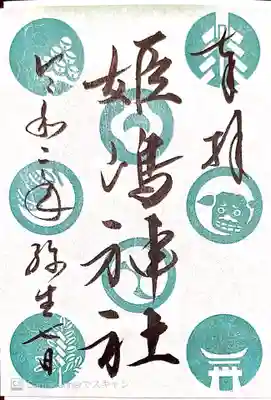 奉拝
姫嶋神社
令和二年 弥生 七日
CamScannerでスキャン